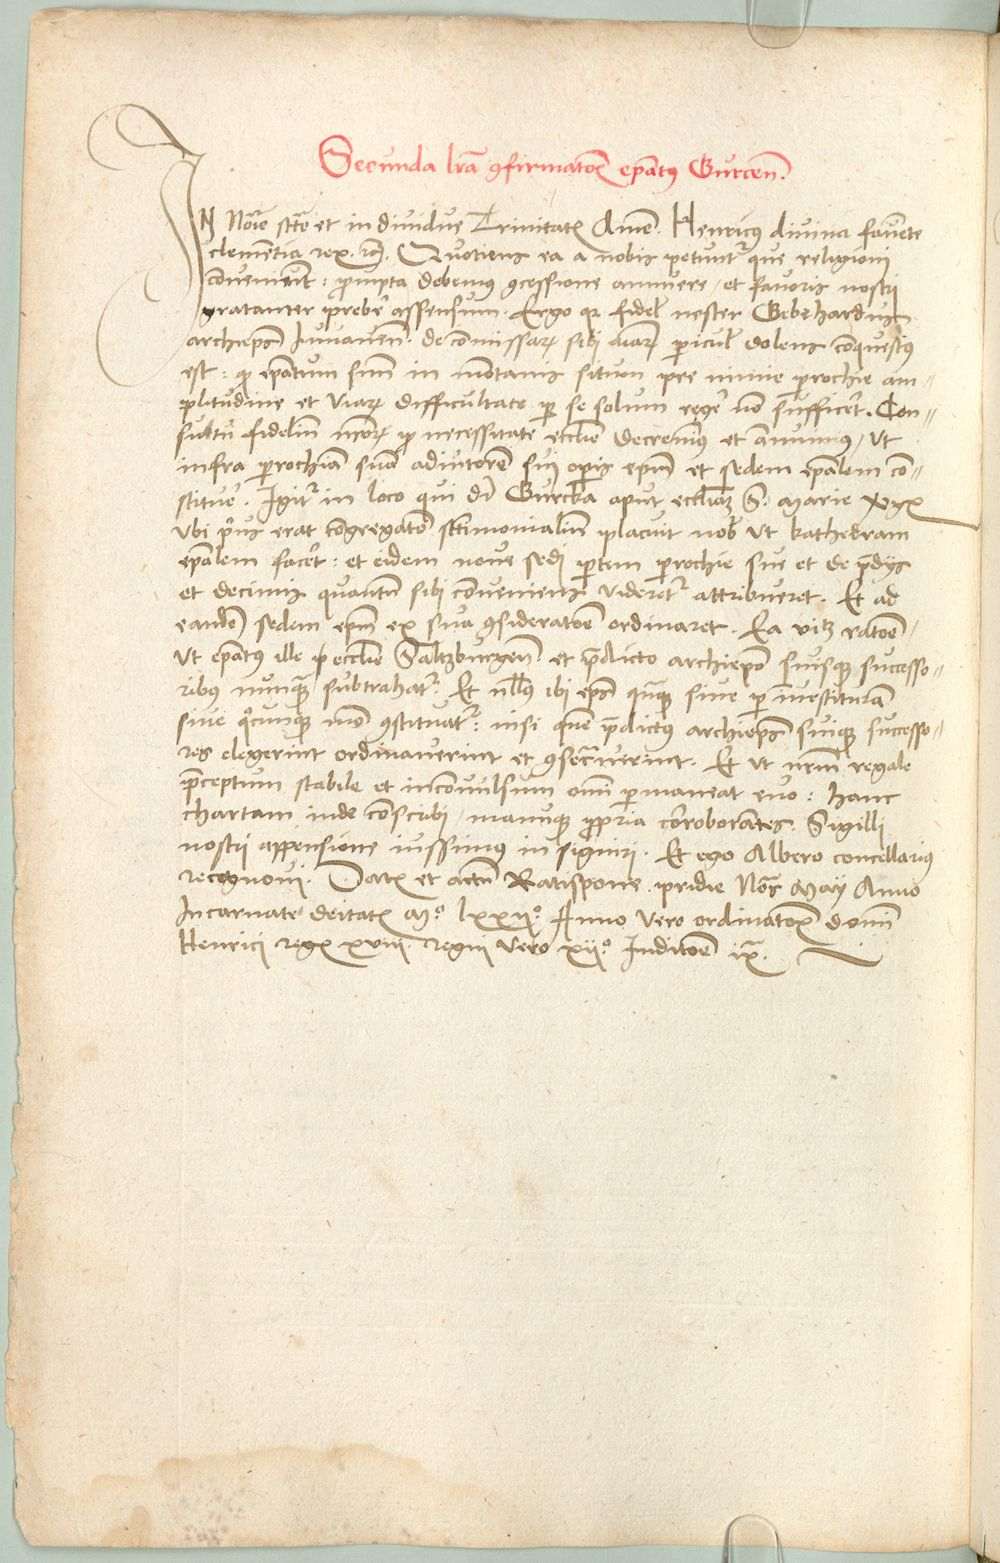 Secunda lr̄a ꝯfirmatōĩs ep̄atus Gurcen̄.
IN Nōie sctē et individue Trinitatis Amē. Henricus divina favēte
clementia rex. rc̄. Quotiens ea a nobis petunt᷑ que religioni
conveniūt : prompta debemus ꝯcessione annuere / et favoris nostri
gratanter prebere assensum. Ergo qꝛ fidel̄ noster Gebehardus
archiep̄s Juvaven̄. de cōmissaꝝ sibi aīaꝝ pericul̄ dolens conquestus
est : qꝫ ep̄atum suū in mōtanis situm pre nimie parrochie am-
plitudine et viaꝝ difficultate per se solum regere nō sufficeret. Con-
sultu fidelium nr̄oꝝ ꝓ necessitate ecclīe decrevimꝰ et annuimus, ut
infra parrochiā suā adiutorē sui operis ep̄m et sedem ep̄alem co-
stituere. Igit᷑ in loco qui dr̄ Gurcka aput ecclīaꝫ S. Marie Virgīs
ubi prius erat congregatō sctīmonialiū placuit nob̄ ut kathedram
ep̄alem facēt : et eidem nove sedi partem parrochie sue et de prēdijs
et decimis quantū sibi conveniens videret᷑ attribueret. Et ad
eandē sedem ep̄m ex sua ꝯsideratōe ordinaret. Ea vitꝫ ratōe.
ut ep̄atus ille ꝓ ecclīe Saltzburgen̄. et p̄dicto archiepō suisqꝫ successo-
ribus nunquā subtrahat᷑. Et nullꝰ ibi ep̄s quāqꝫ sive per investiturā
sive qōcunqꝫ mō ꝯstituat᷑ : nisi quē p̄dictus archiep̄s suiqꝫ successo-
res elegerint ordinaverint et ꝯsecraverint. Et ut nr̄m regale
p̄ceptum stabile et inconvulsum omi permaneat evo : hanc
chartam inde conscribi / manuqꝫ propria corroborātes. Sigilli
nostri appensione iussimus insigniri. Et ego Albero concellarius
recognovi. Datꝫ et actū Ratispone. pridie Noñ Maij Anno
Incarnate deitatis Mº. lxxijº. Anno vero ordinatōis domī
Henrici regꝫ xviij. regni vero xijº. Indictōe ix̄.